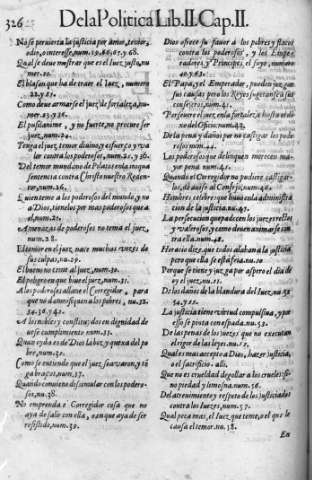 326 De la Politica Lib. II. Cap. II.
No se pervierta la justicia por amor, temor,
odio, o interesse, num. 19. 66. 67. y 68.
Qual se deve mostrar que es el Juez justo, nu
mer. 20.
El blason que ha de traer el Juez, numero
22. y 21.
Como deve armarse el juez de fortaleza, nu-
mer. 23. y 26.
El pusilanimo, y no fuerte, no procure ser
juez, num. 24.
Tenga el juez, temor divino, y esfuerço y va
lor contra los poderosos, num. 25. y 30.
Del temor mundano de Pilatos en la iniqua
sentencia contra Christo nuestro Reden-
tor, num. 26.
Quien teme a los poderosos del mundo, y no
a Dios, tienelos por mas poderosos que a
el, num. 27.
Amenazas de poderosos no tema el juez,
num. 28.
El temor en el juez, nace muchas vezes de
sus culpas, nu. 29.
El bueno no teme al juez, num. 30.
El peligro en que huye el juez, num. 31.
A los poderosos allane el Corregidor, para
que no damnifiquen a los pobres, nu. 32.
34. 36. y 41.
A los nobles y constituydos en dignidad de
usese cumplimiento num. 33.
Quan oyda es de Dios la boz, y quexa del po
bre, num. 35.
Como se entiende que el juez sea varon, y tē
ga braços, num. 37.
Quando conviene dissimular con los podero-
sos, nu. 38.
No emprenda el Corregidor cosa que no
aya de salir con ella, aunque aya de ser
resistido, num. 39.
Dios ofrece su favor a los pobres y flacos
contra los poderosos, y los Empe
radores, y Principes, el suyo, numero
40. y 62.
El Papa, y el Emperador, pueden juzgar
sus causas, pero los Reyes sugetanse a sus
consejeros, num. 41.
Persevere el juez, en la fortaleza hasta el di
no del Oficio, num. 42.
De la pena y daños por no castigar los pode-
rosos num. 44.
Los poderosos que delinquen merecen ma-
yor pena num. 45.
Quando el Corregidor no pudiere castigar-
los, de aviso al Consejo, num. 48.
Hombres celebres que huvo en la administra
cion de la justicia. nu. 49.
La persecucion que padecen los juezes rectos
y valerosos, y como deven animarse con
tra ella. num. 48.
Horacio dize, que todos alaban a la justicia
pero que ella se està fria. nu. 50.
Porque se tiene y juzga por aspero el dia de
oy el juez. nu. 51.
De los daños de la blandura del Juez, nu. 52
54. y 55.
La justicia tiene virtud compulsiva, y por
esso se pinta con espada. nu. 53.
De las penas de los juezes que no executan
el rigor de las leyes. nu. 57.
Qual es mas accepto a Dios, hazer justicia,
o el sacrificio. alli.
Que no es crueldad degollar a los crueles: si
no piedad y limosna, num. 56.
Del atrevimiento y respeto de los justiciados
contra los Iuezes, num. 57.
Qual peca mas, el Iuez que teme, o el que le
causa el temor. nu. 58.
En